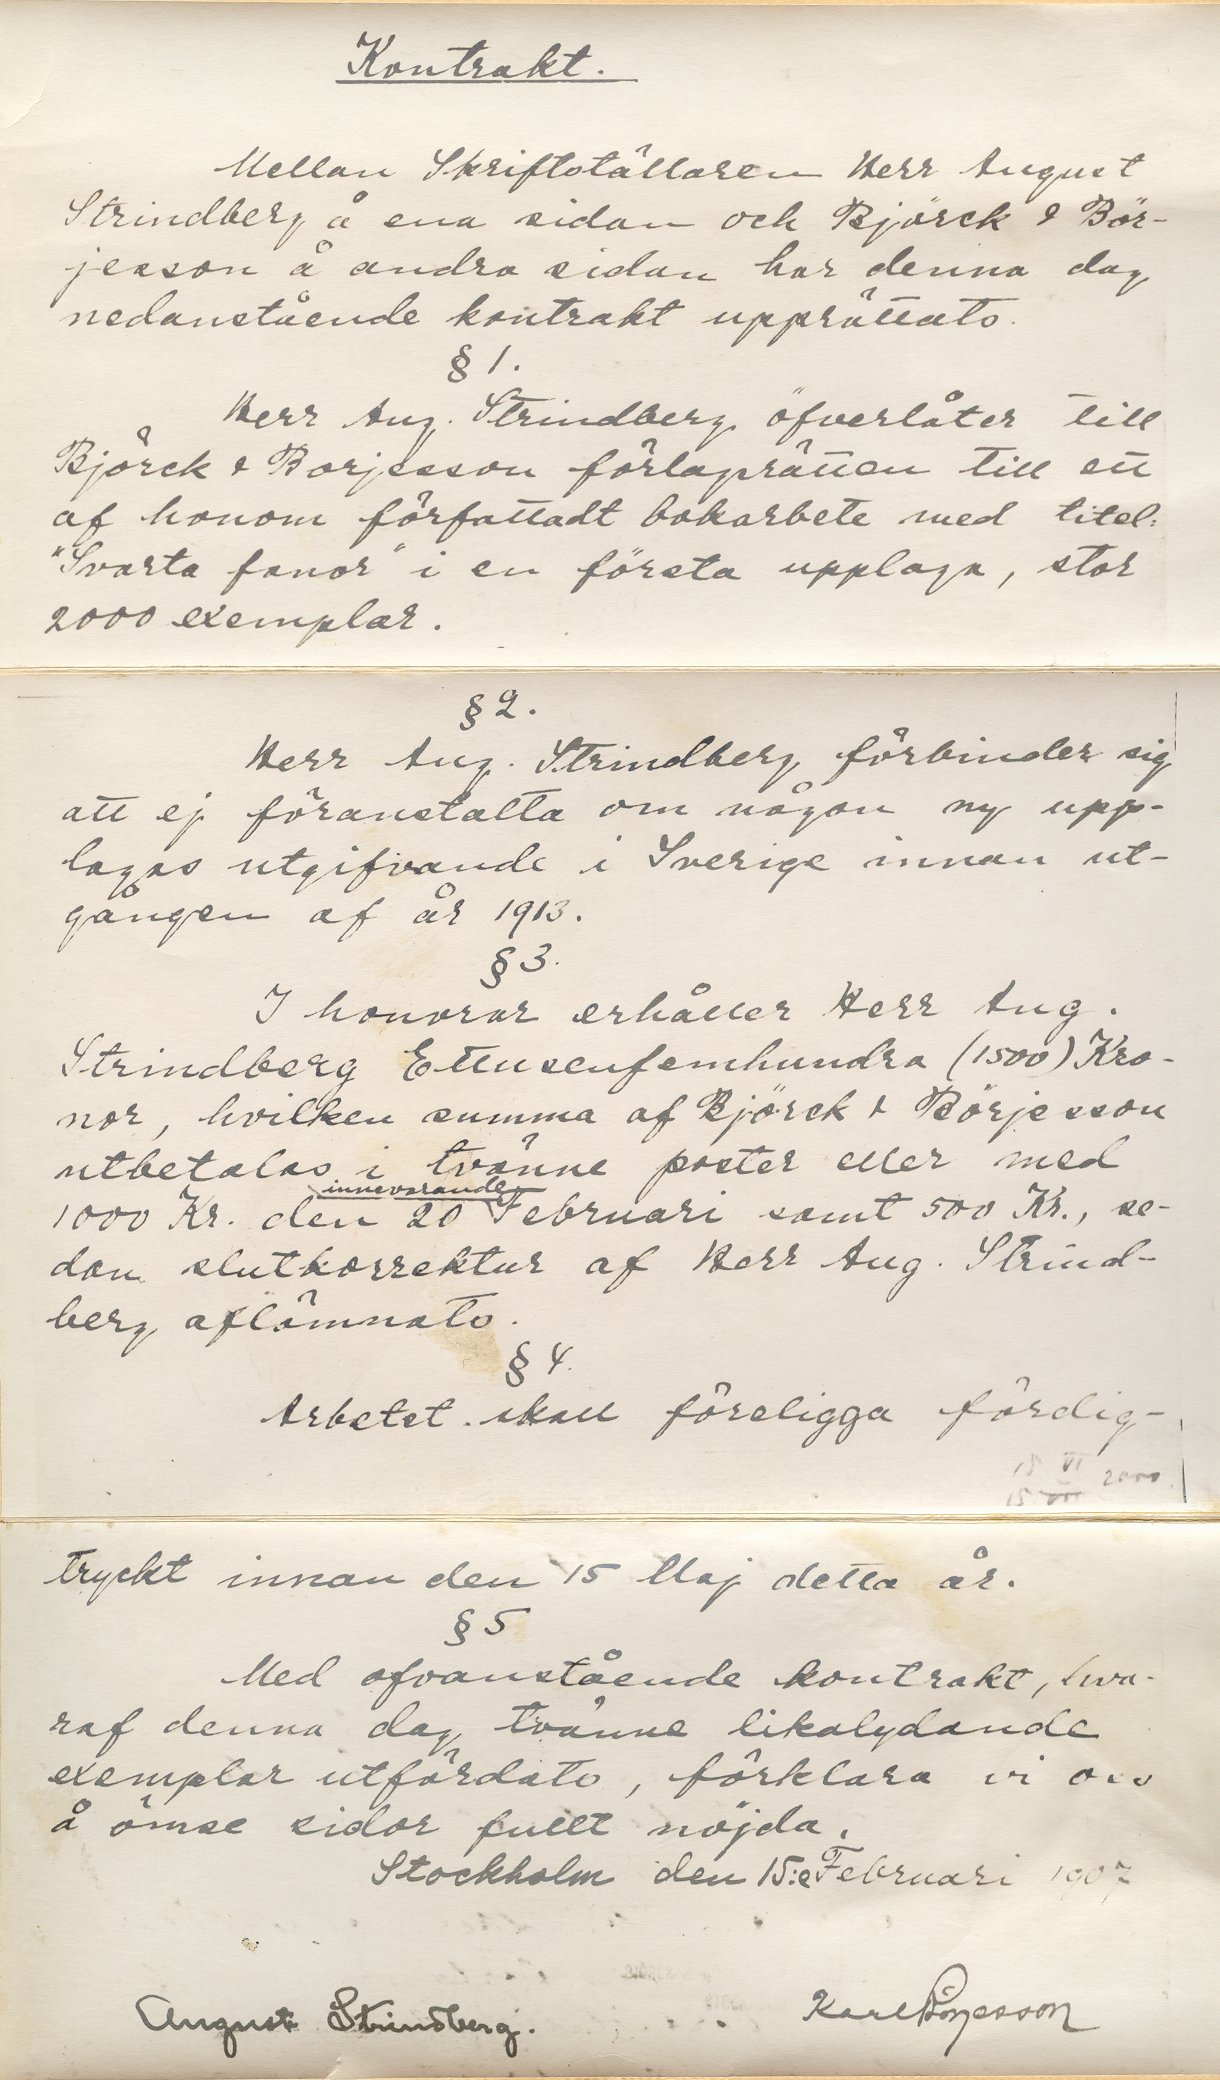 Kontrakt.
Mellan Skriftställaren Herr August
Strindberg å ena sidan och Björck & Bör-
jesson å andra sidan har denna dag
nedanstående kontrakt upprättats.
§ 1.
Herr Aug. Strindberg öfverlåter till
Björck & Borjesson förlagsrätten till ett
af honom författadt bokarbete med titel:
"Svarta fanor" i en första upplaga, stor
2000 exemplar.
§ 2.
Herr Aug. Strindberg förbinder sig
att ej föranstalta om någon ny upp-
lagas utgifvande i Sverige innan ut-
gången af år 1913.
§ 3.
I honorar erhåller Herr Aug.
Strindberg Ettusenfemhundra (1500) Kro-
nor, hvilken summa af Björck & Börjesson
utbetalas i tvänne poster eller med
innevarande
1000 Kr. den 20 Februari samt 500 Kr., se-
dan slutkorrektur af Herr Aug. Strind-
berg aflämnats.
§ 4.
Arbetet skall föreligga färdig-
15 VI 2000
15
tryckt innan den 15 Maj detta år.
§ 5
Med ofvanstående kontrakt, hva-
raf denna dag tvänne likalydande
exemplar utfärdats, förklara vi oss
å ömse sidor fullt nöjda.
Stockholm den 15:e Februari 1907
August Strindberg.
Karl Börjesson